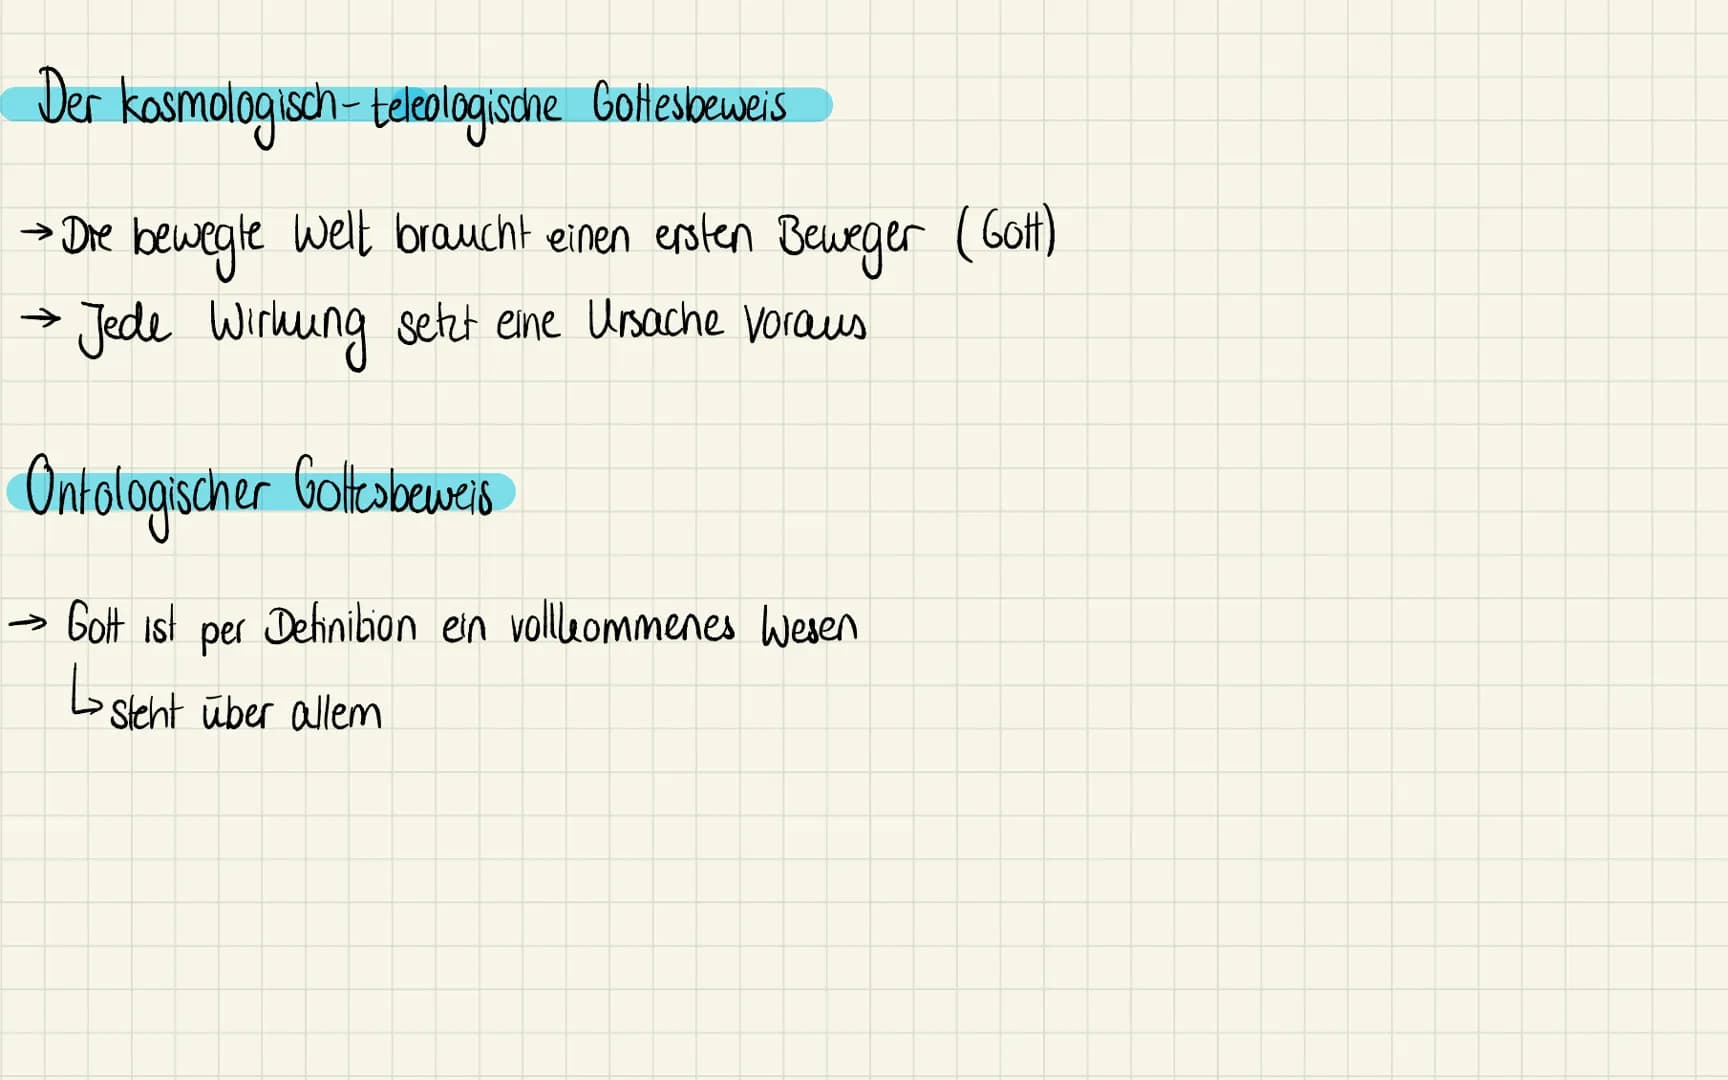 Der kosmologisch-teleologische Gottesbeweis
→ Die bewegte Welt braucht einen ersten Beweger (Gott)
→ Jede Wirkung setzt eine Ursache voraus
Ontologischer Gottesbeweis
→ Gott ist per Definition ein vollkommenes Wesen
↳ steht über allem